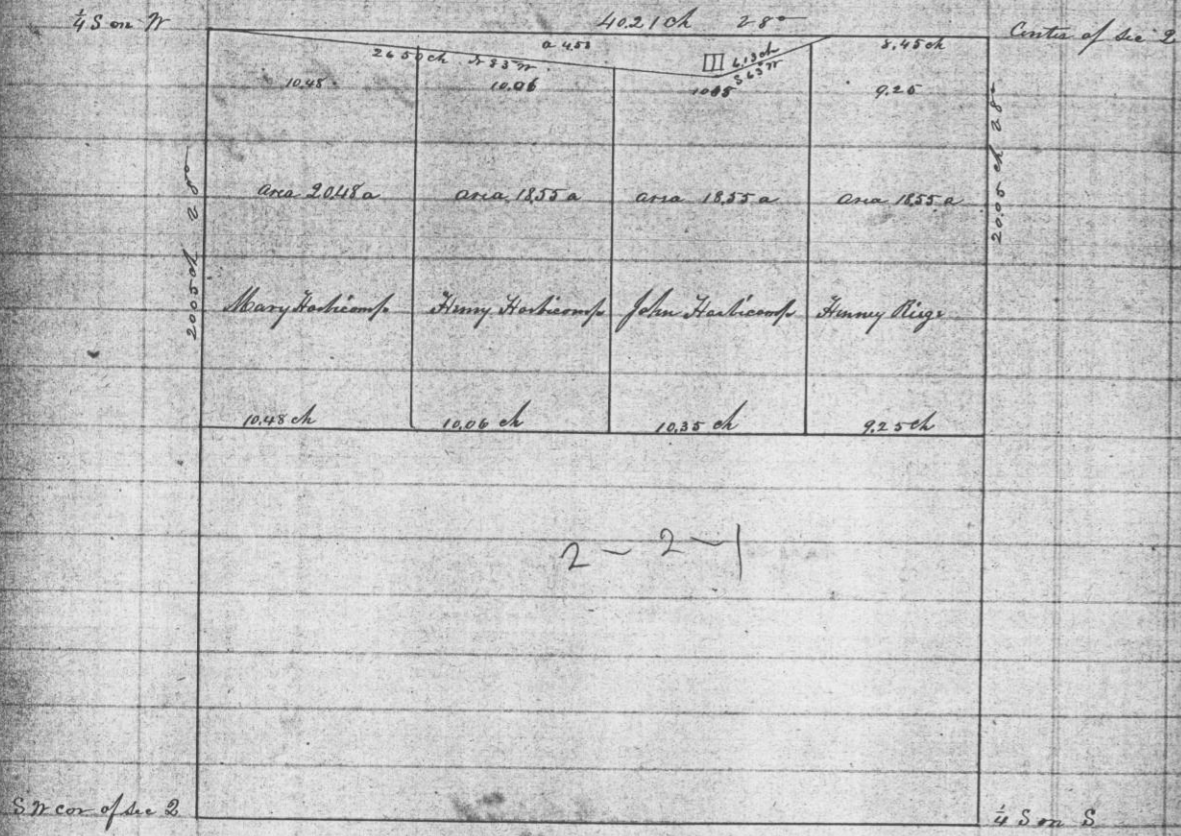 1/4 S on W
40.21 ch 2 8°
Center of Sec 2
26.50 ch N 83 W
a 4.58
III
6.13 ch
S 63 W
8.45 ch
10.48
10.06
9.25
20.05 ch 2 8°
area 20.48 a
area 18.55 a
area 18.55 a
area 18.55 a
20.05 ch 2 8°
Mary Harbicomp
Henry Harbicomp
John Harbicomp
10.48 ch
10.06 ch
10.35 ch
9.25 ch
2 - 2 - 1
S W cor of Sec 2
1/4 S on S